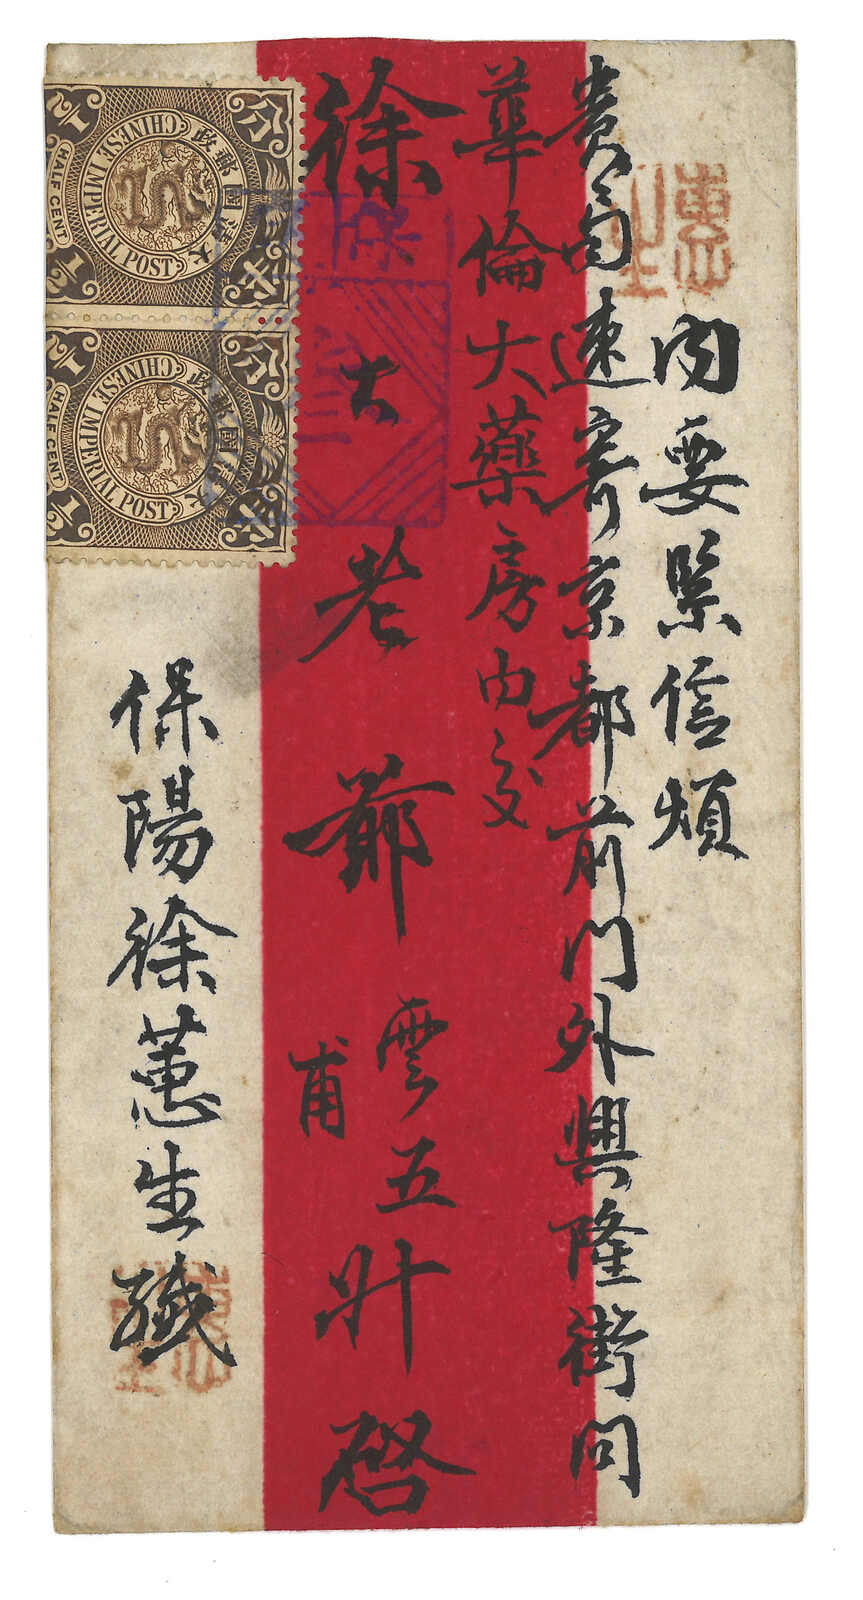 內要緊信煩
貴局速寄京都前門外興隆街問
華倫大藥房內交
徐大老爺雲五甫升啓
保陽徐蕙生緘
大清國郵政
半分
CHINESE IMPERIAL POST
HALF CENT
1/2
1/2
大清國郵政
半分
CHINESE IMPERIAL POST
HALF CENT
1/2
1/2